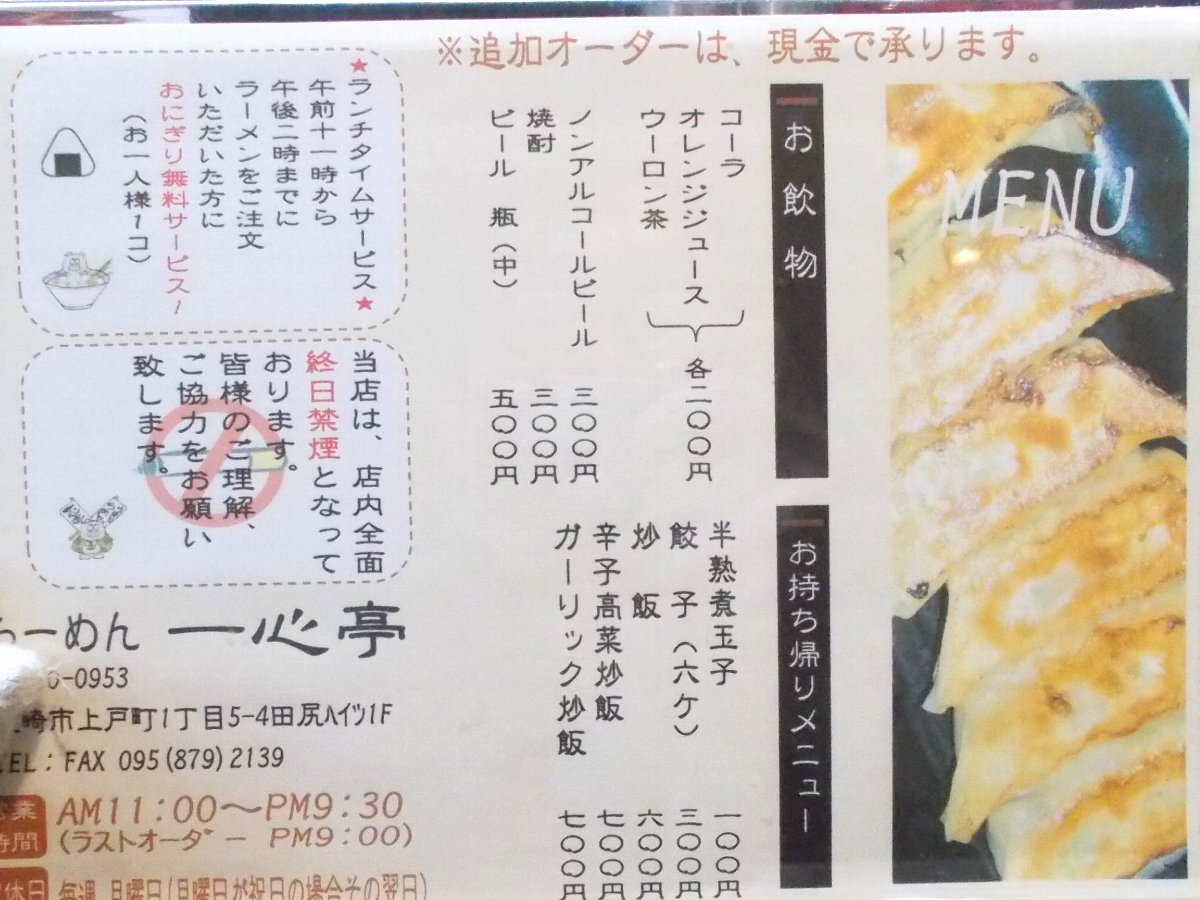 ※追加オーダーは、現金で承ります。
MENU
お飲物
コーラ
オレンジジュース
ウーロン茶
各二〇〇円
ノンアルコールビール 三〇〇円
焼酎 三〇〇円
ビール 瓶(中) 五〇〇円
お持ち帰りメニュー
半熟煮玉子 一〇〇円
餃子(六ケ) 三〇〇円
炒飯 六〇〇円
辛子高菜炒飯 七〇〇円
ガーリック炒飯 七〇〇円
★ランチタイムサービス★
午前十一時から
午後二時までに
ラーメンをご注文
いただいた方に
おにぎり無料サービス!
(お一人様1コ)
当店は、店内全面
終日禁煙となって
おります。
皆様のご理解、
ご協力をお願い
致します。
らーめん 一心亭
0-0953
崎市上戸町1丁目5-4田尻ハイツ1F
TEL:FAX 095(879)2139
営業時間 AM11:00〜PM9:30
(ラストオーダー PM9:00)
休日 毎週 月曜日(月曜日が祝日の場合その翌日)